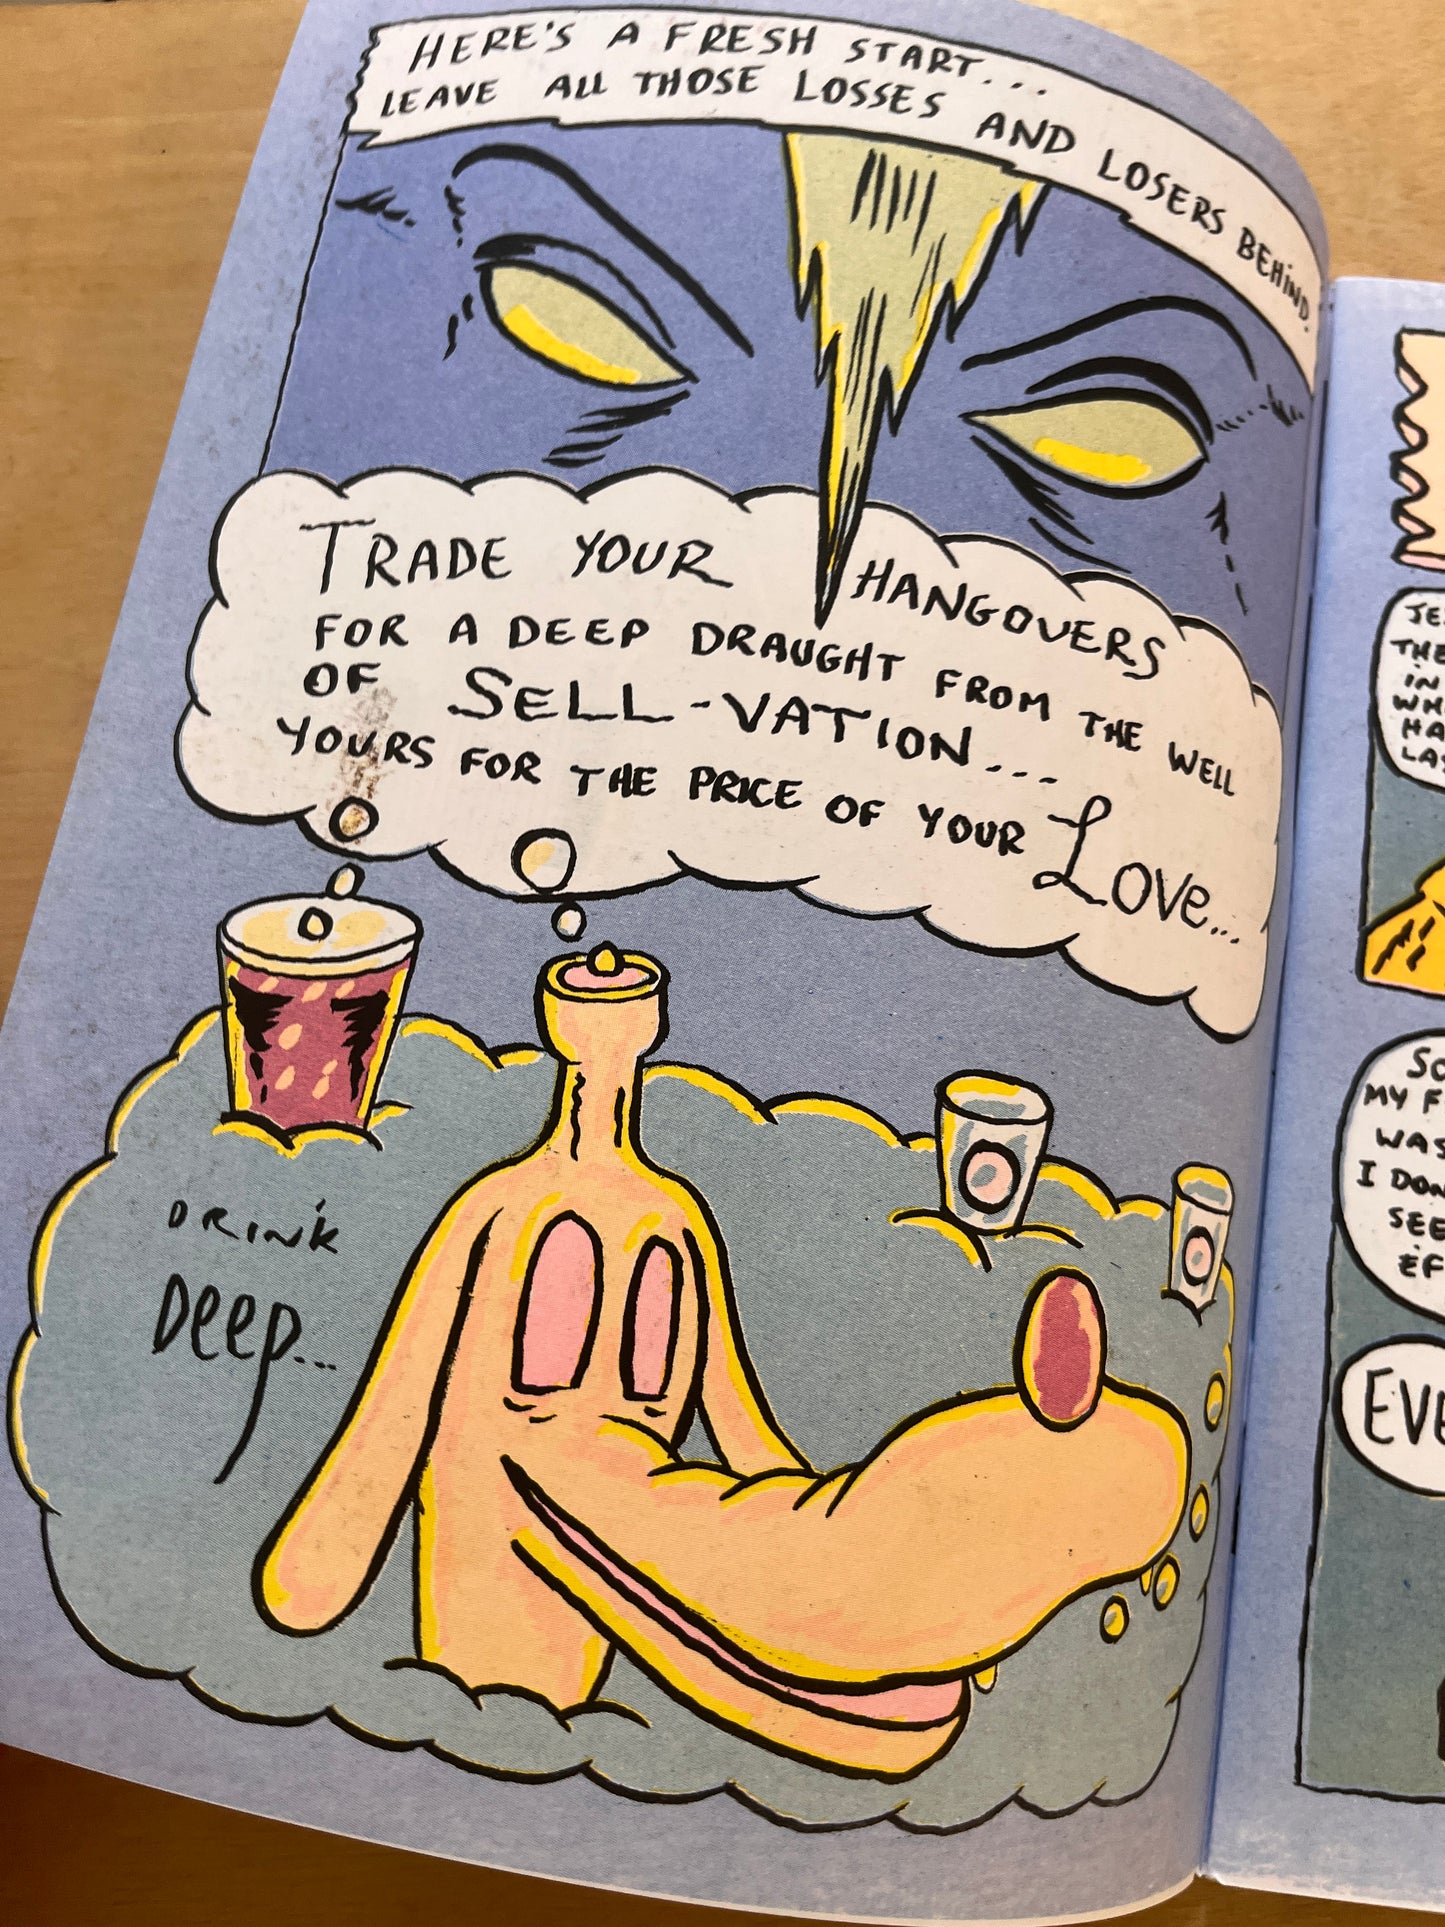 HERE'S A FRESH START...
LEAVE ALL THOSE LOSSES AND LOSERS BEHIND.
TRADE YOUR HANGOVERS
FOR A DEEP DRAUGHT FROM THE WELL
OF SELL-VATION...
YOURS FOR THE PRICE OF YOUR LOVE...
DRINK
DEEP...
THE
IN
MY F
WAS
I DON
SEE
EVE